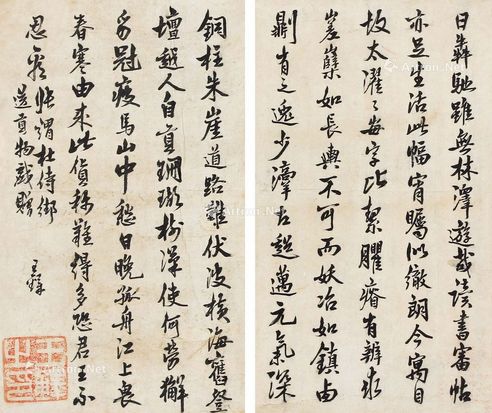 日犇馳雖無林澤遊哉讀書審帖
亦足生活此幅宵矚似徹朗今寓目
故太濯々每字比絜臞瘠有辨求
如長輿不可而妖冶如鎮西
則有之逸少古超邁元氣深
銅柱朱崖道路難伏波橫海舊登
壇越人自貢珊瑚樹漢使何勞獬
豸冠疲馬山中愁日晚孤舟江上畏
春寒由來此貨稱難得多恐君王不
忍看 張謂杜侍御
送貢物戲贈
王鐸